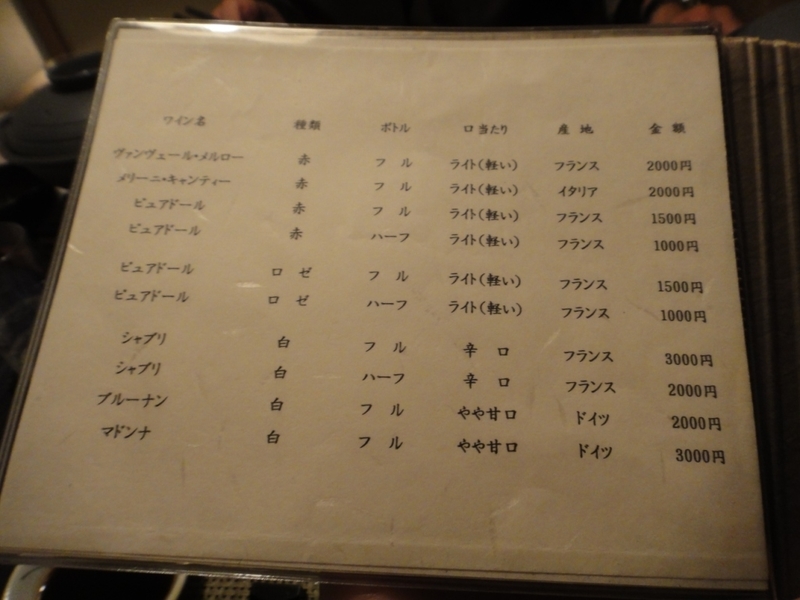 ワイン名 種類 ボトル 口当たり 産地 金額
ヴァンヴェール・メルロー 赤 フル ライト(軽い) フランス 2000円
メリーニ・キャンティー 赤 フル ライト(軽い) イタリア 2000円
ピュアドール 赤 フル ライト(軽い) フランス 1500円
ピュアドール 赤 ハーフ ライト(軽い) フランス 1000円
ピュアドール ロゼ フル ライト(軽い) フランス 1500円
ピュアドール ロゼ ハーフ ライト(軽い) フランス 1000円
シャブリ 白 フル 辛口 フランス 3000円
シャブリ 白 ハーフ 辛口 フランス 2000円
ブルーナン 白 フル やや甘口 ドイツ 2000円
マドンナ 白 フル やや甘口 ドイツ 3000円